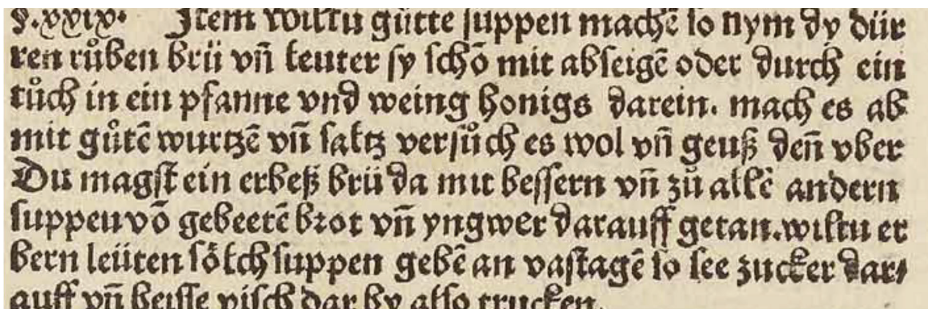 §.xxix. Jtem wiltu gůtte suppen machē so nym dy dür
ren růben brü vn̄ leuter sy schō mit abseigē oder durch ein
tůch in ein pfanne vnd weing honigs darein. mach es ab
mit gůtē wurtzē vn̄ saltz versůch es wol vn̄ geuß den̄ vber
Du magst ein erbeß brü da mit bessern vn̄ zů allē andern
suppen vō gebeetē brot vn̄ yngwer darauff getan. wiltu er
bern leüten sölch suppen gebē an vastagē so see zucker dar⸗
auff vn̄ beisse visch dar by also trucken.